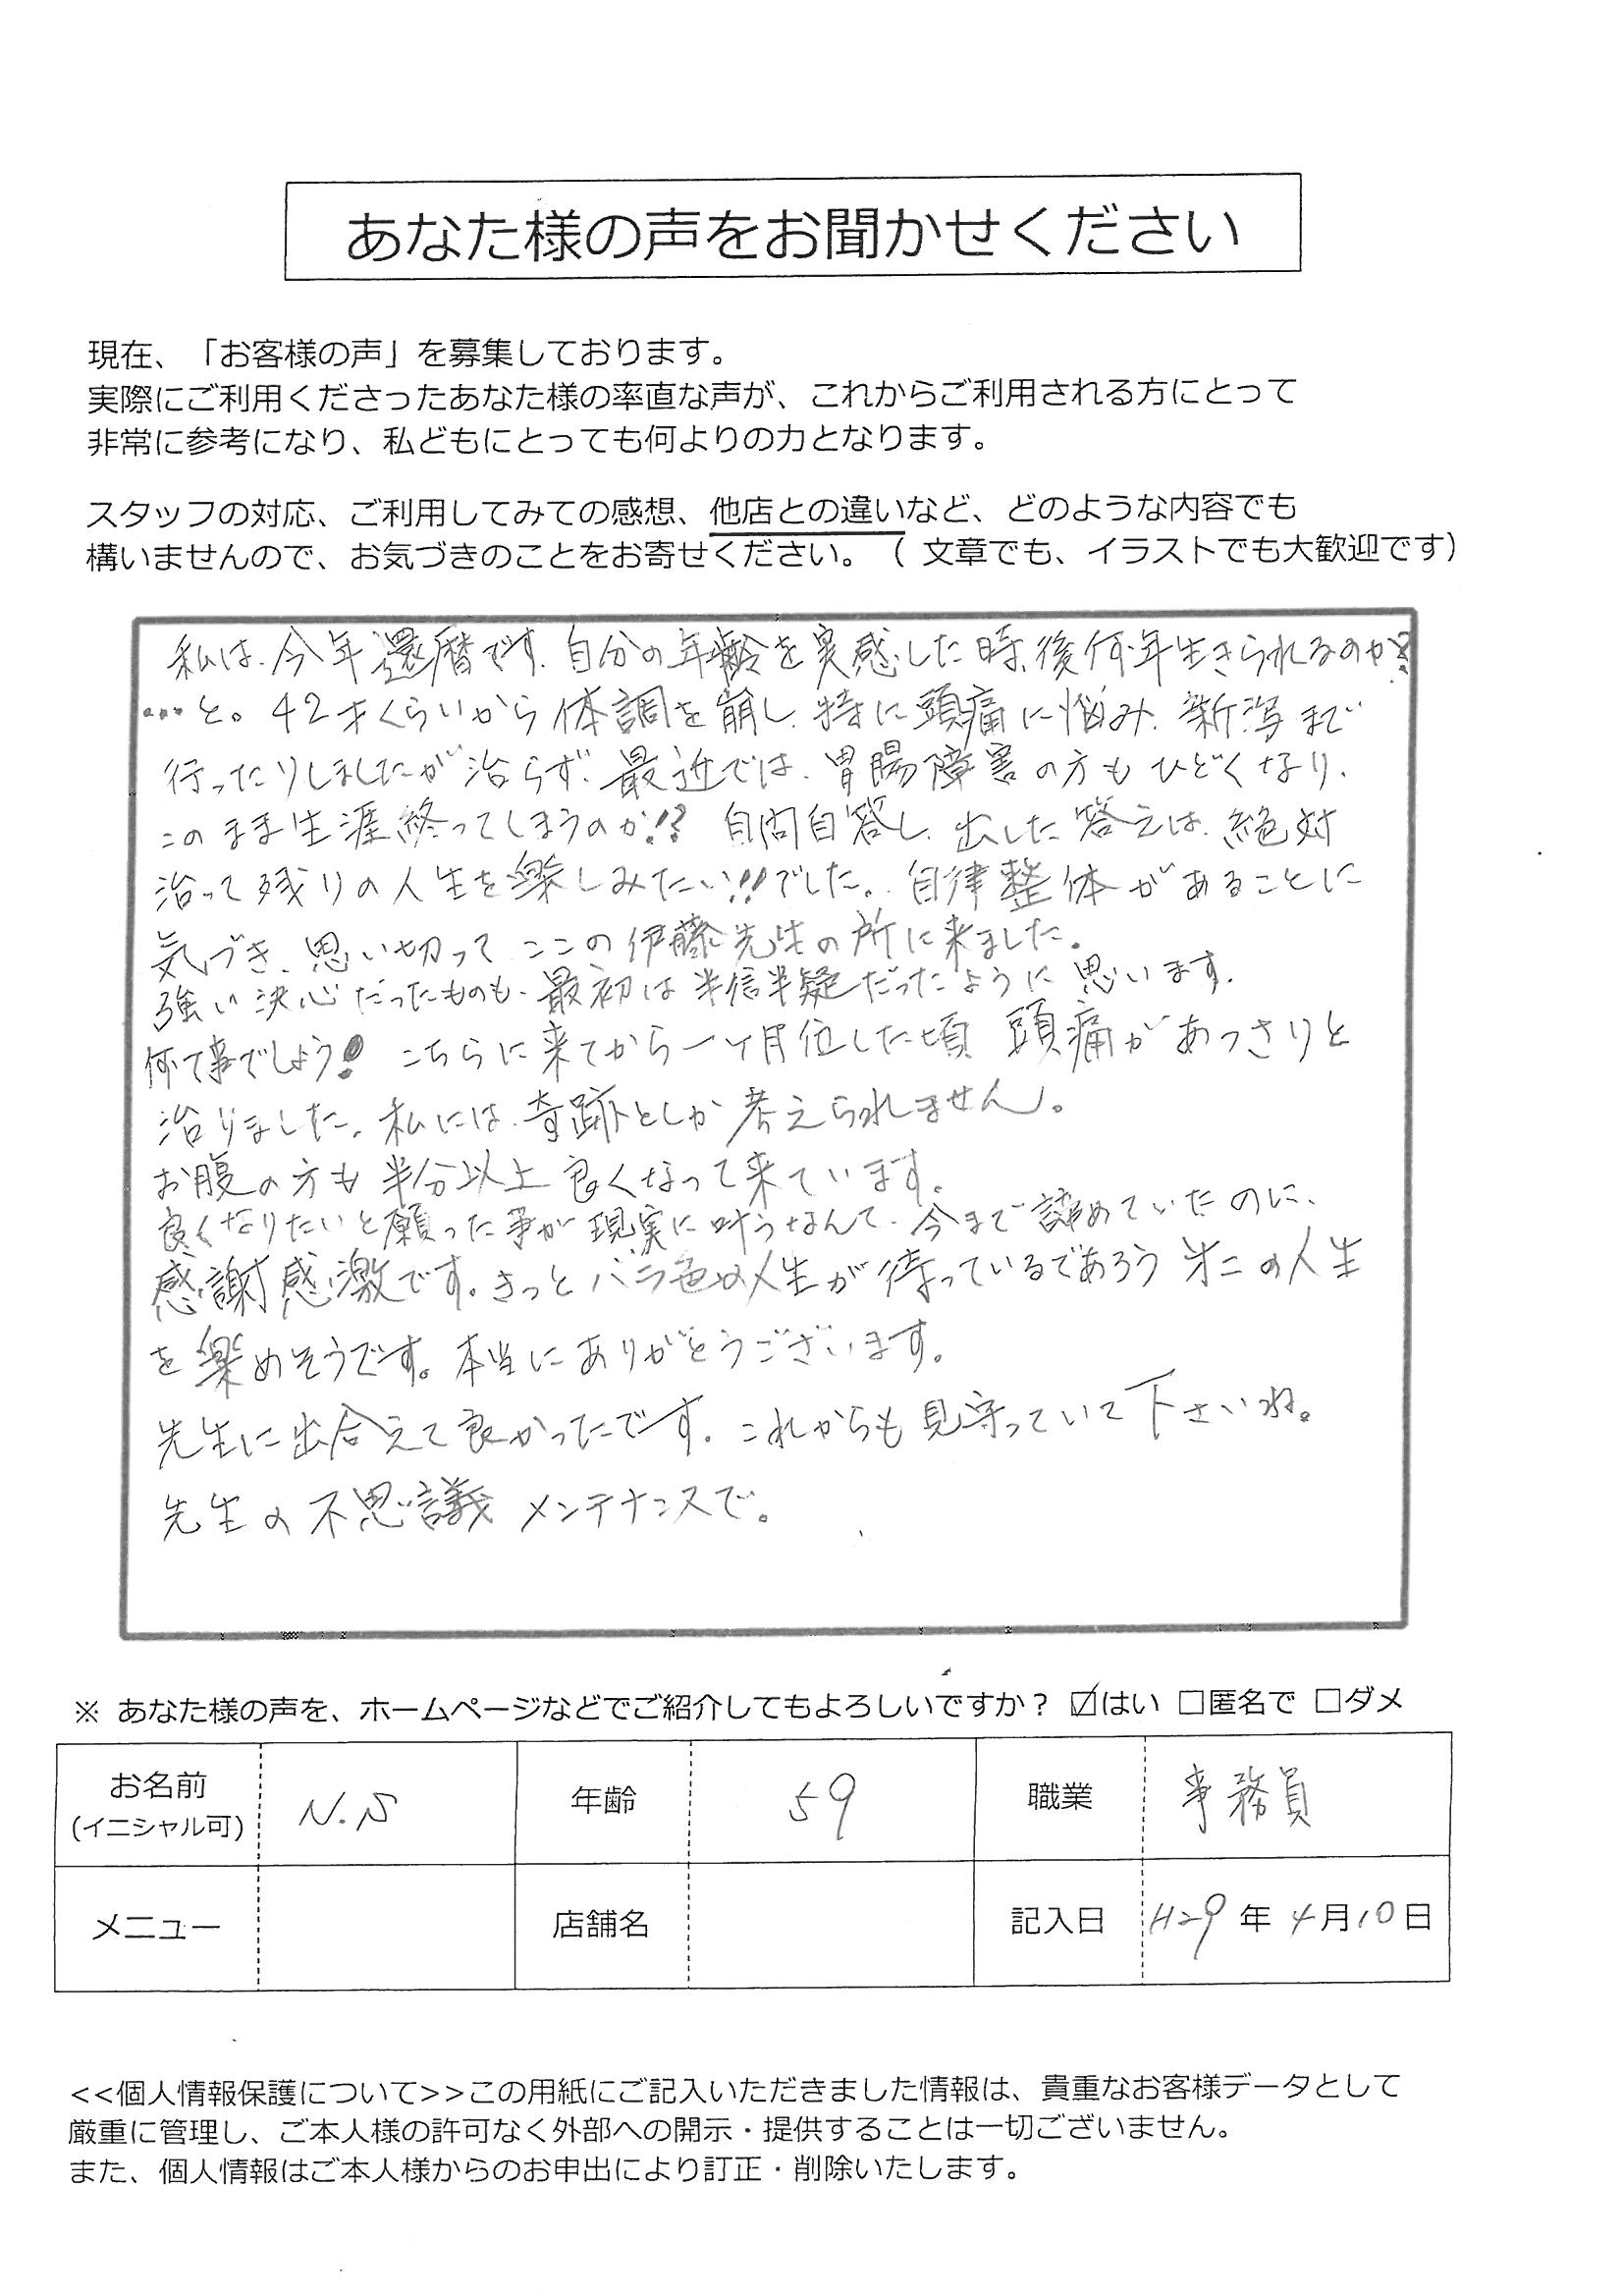 あなた様の声をお聞かせください
現在、「お客様の声」を募集しております。
実際にご利用くださったあなた様の率直な声が、これからご利用される方にとって
非常に参考になり、私どもにとっても何よりの力となります。
スタッフの対応、ご利用してみての感想、他店との違いなど、どのような内容でも
構いませんので、お気づきのことをお寄せください。（ 文章でも、イラストでも大歓迎です）
私は、今年還暦です。自分の年齢を実感した時、後何年生きられるのか?
…と。42才くらいから体調を崩し、特に頭痛に悩み、新潟まで
行ったりしましたが治らず、最近では、胃腸障害の方もひどくなり、
このまま生涯終ってしまうのか!? 自問自答し、出した答えは、絶対
治って残りの人生を楽しみたい!!でした。自律整体があることに
気づき、思い切って ここの伊藤先生の所に来ました。
強い決心だったものも、最初は半信半疑だったように思います。
何て事でしょう! こちらに来てから一ヶ月位した頃 頭痛があっさりと
治りました。私には、奇跡としか考えられません。
お腹の方も半分以上良くなって来ています。
良くなりたいと願った事が現実に叶うなんて、今まで諦めていたのに、
感謝感激です。きっとバラ色の人生が待っているであろう 才二の人生
を楽めそうです。本当にありがとうございます。
先生に出合えて良かったです。これからも見守っていて下さいね。
先生の不思議メンテナンスで。
※ あなた様の声を、ホームページなどでご紹介してもよろしいですか？ ☑はい □匿名で □ダメ
お名前 (イニシャル可) N.S 年齢 59 職業 事務員
メニュー 店舗名 記入日 H29年4月10日
<<個人情報保護について>>この用紙にご記入いただきました情報は、貴重なお客様データとして
厳重に管理し、ご本人様の許可なく外部への開示・提供することは一切ございません。
また、個人情報はご本人様からのお申出により訂正・削除いたします。